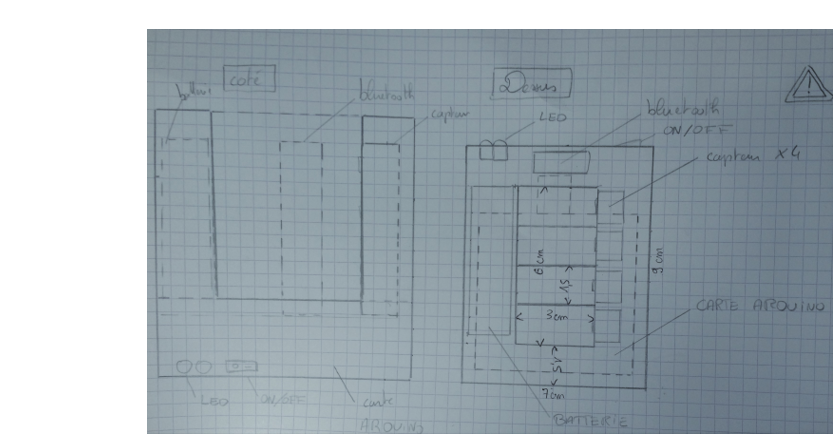 coté
bluetooth
capteur
LED
ON/OFF
carte
ARDUINO
Dessus
LED
bluetooth
ON/OFF
capteur x4
6 cm
1,5
3cm
1,5
9 cm
7cm
CARTE ARDUINO
BATTERIE